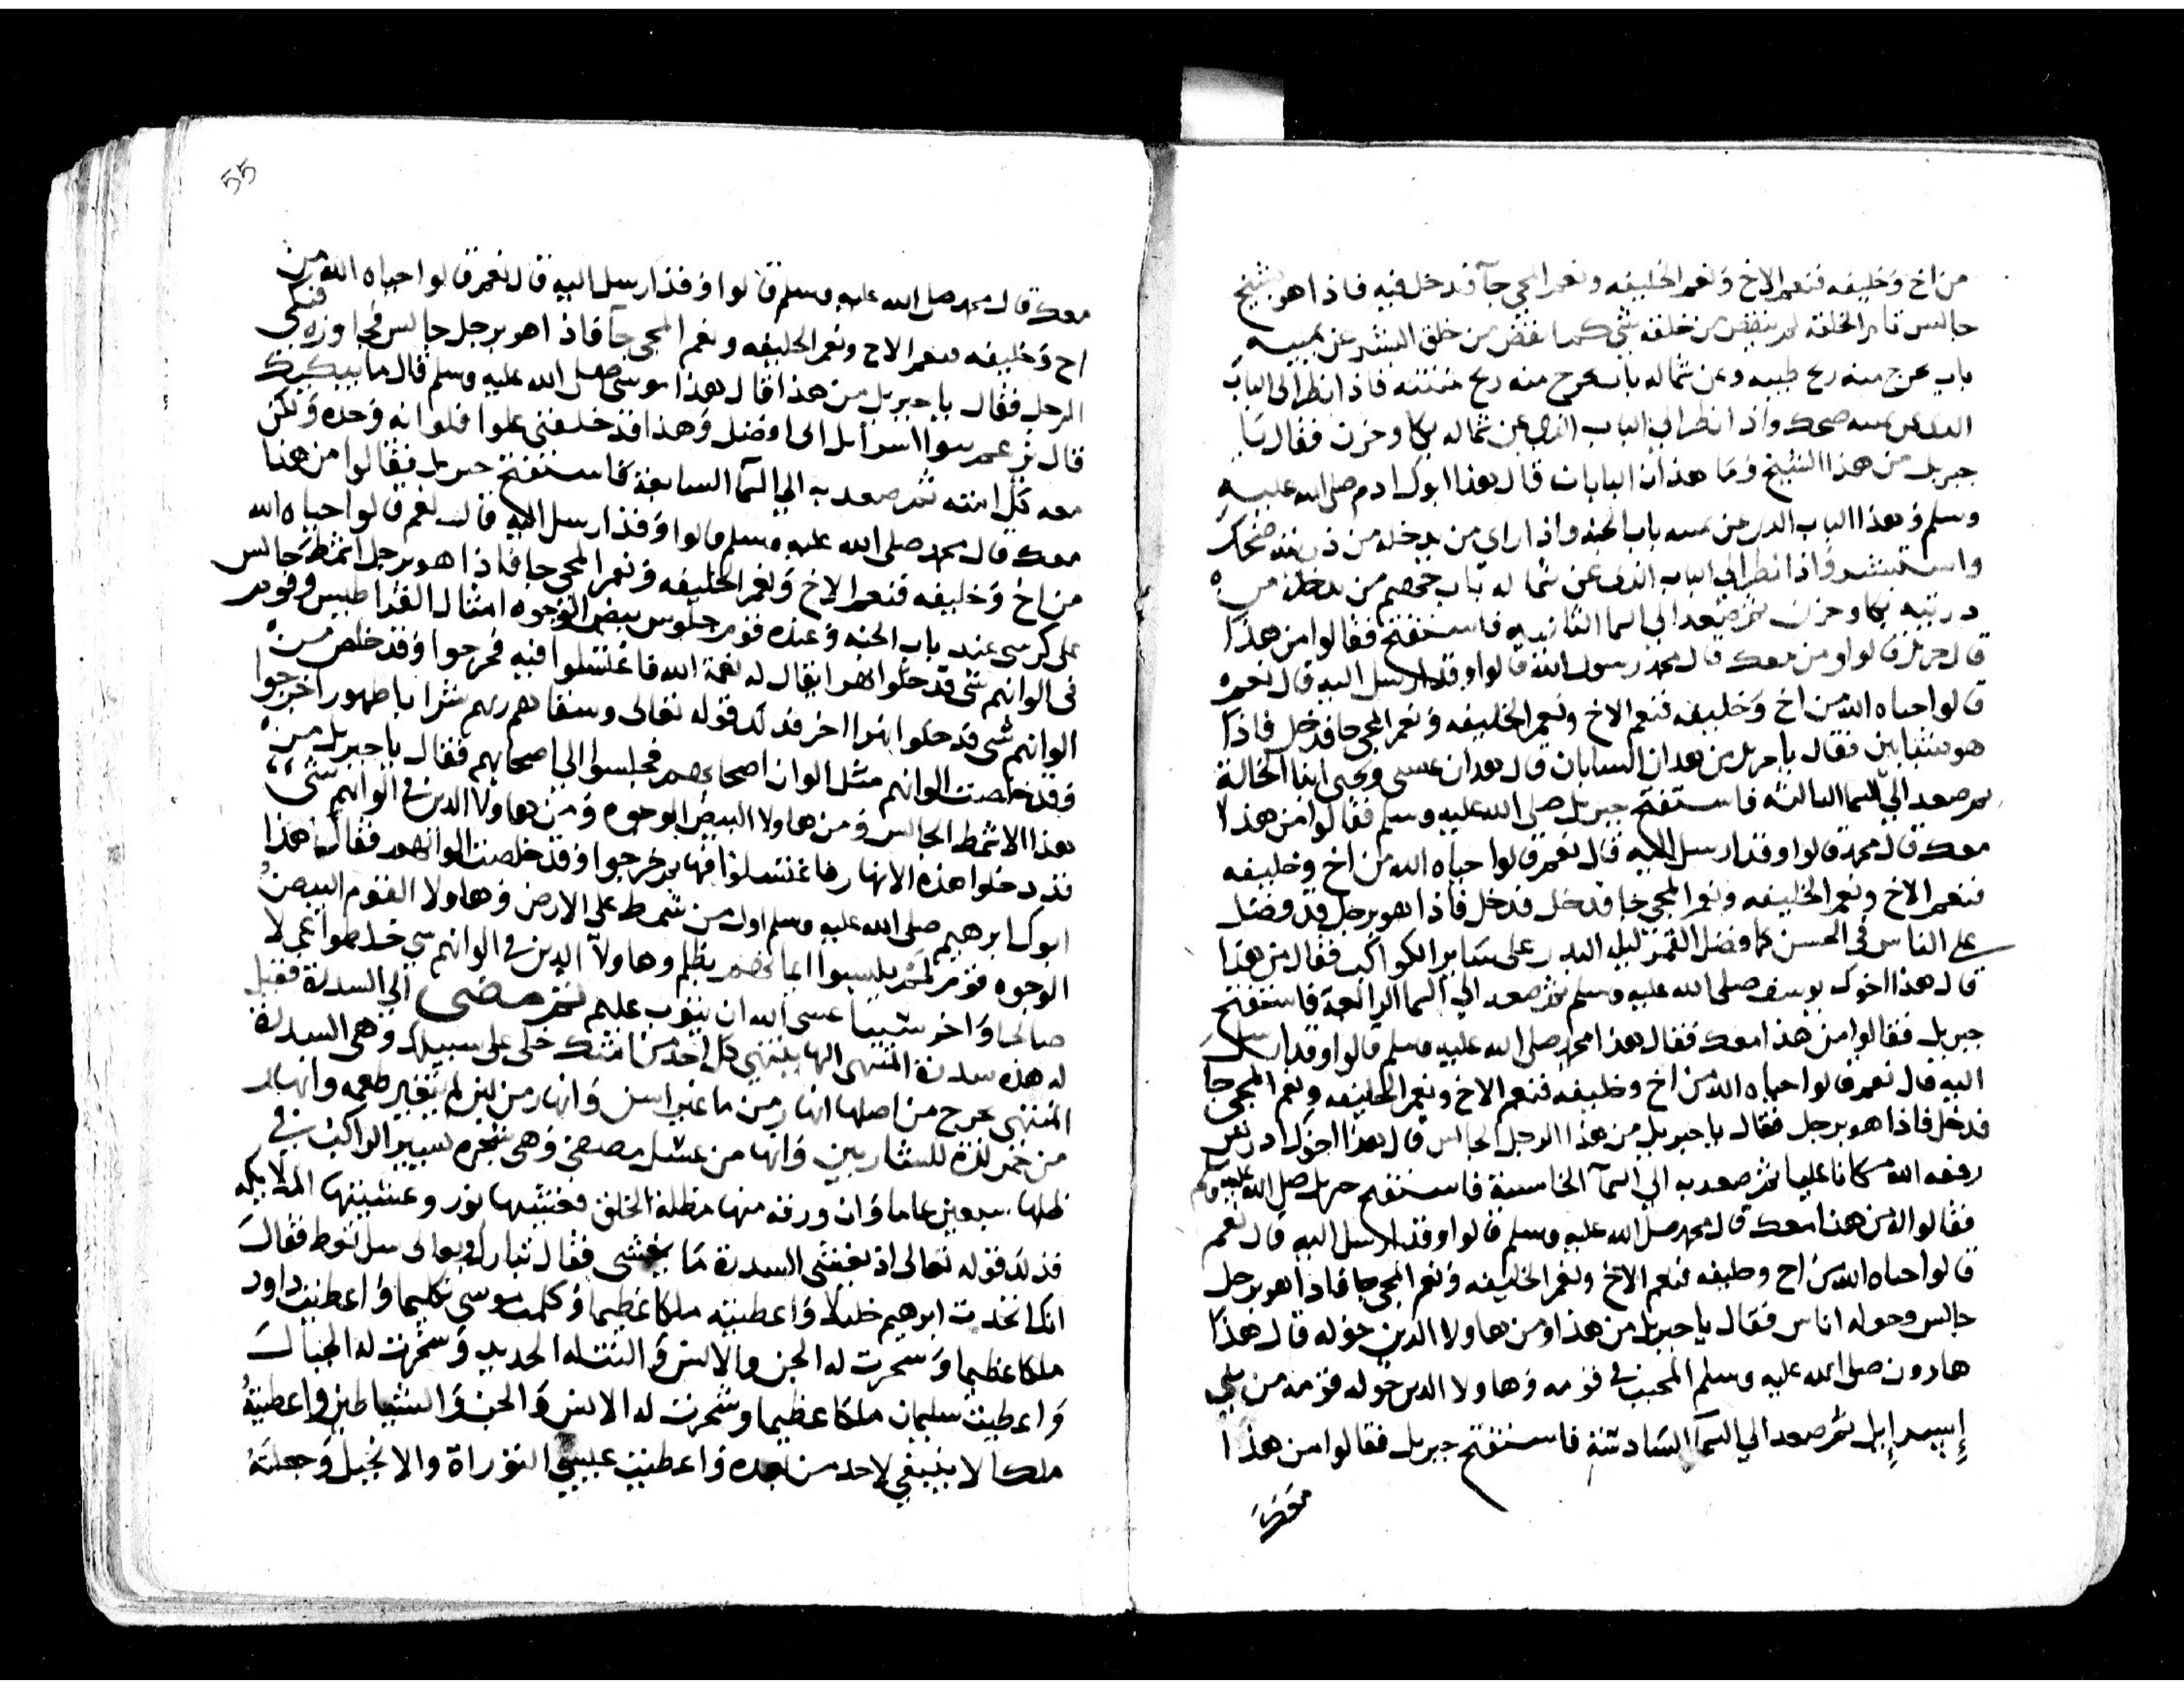 من اخ وخليفه فنعم الاخ ونعم الخليفه ونعم المجي جآ فدخل فيه فاذا هو بشيخ
جالس تام الخلقه لم ينقص من خلقه شي كما ينقص من خلق البشر عن يمينه
باب يخرج منه ريح طيبه وعن شماله باب يخرج منه ريح منتنه فاذا نظر الى الباب
الذي عن يمينه ضحك واذا نظر الي الباب الذي عن شماله بكا وحزن فقال يا
جبريل من هذا الشيخ وما هذان البابان قال هذا ابوك ادم صلى الله عليه
وسلم وهذا الباب الذي عن يمينه باب الجنه واذا راي من يدخله من ذريته ضحك
واستبشر واذا نظر الي الباب الذي عن شماله باب جهنم من يدخله من
ذريته بكا وحزن ثم صعد الي السما الثانيه فاستفتح فقالوا من هذا
قال جبريل قالوا ومن معك قال محمد رسول الله قالوا وقد ارسل اليه قال نعم
قالوا حياه الله من اخ وخليفه فنعم الاخ ونعم الخليفه ونعم المجي جا فدخل فاذا
هو بشابين فقال يا جبريل من هذان الشابان قال هذان عيسى ويحيى ابنا الخالة
ثم صعد الي السما الثالثه فاستفتح جبريل صلى الله عليه وسلم فقالوا من هذا
معك قال محمد قالوا وقد ارسل اليه قال نعم قالوا حياه الله من اخ وخليفه
فنعم الاخ ونعم الخليفه ونعم المجي جا فدخل فدخل فاذا هو برجل قد فضل
على الناس في الحسن كما فضل القمر ليله البدر على ساير الكواكب فقال من هذا
قال هذا اخوك يوسف صلى الله عليه وسلم ثم صعد الي السما الرابعة فاستفتح
جبريل فقالوا من هذا معك فقال هذا محمد صلى الله عليه وسلم قالوا وقد ارسل
اليه قال نعم قالوا حياه الله من اخ وخليفه فنعم الاخ ونعم الخليفه ونعم المجي جا
فدخل فاذا هو برجل فقال يا جبريل من هذا الرجل الجالس قال هذا اخوك ادريس
رفعه الله مكانا عليا ثم صعد به الي السمآ الخامسة فاستفتح جبريل صلى الله عليه وسلم
فقالوا من هذا معك قال محمد صلى الله عليه وسلم قالوا وقد ارسل اليه قال نعم
قالوا حياه الله من اخ وخليفه فنعم الاخ ونعم الخليفه ونعم المجي جا فاذا هو برجل
جالس وحوله اناس فقال يا جبريل من هذا ومن هاولا الذين حوله قال هذا
هارون صلى الله عليه وسلم المحبب في قومه وهاولا الذين حوله قومه من بني
إسرإيل ثم صعد الي السمآ السادسة فاستفتح جبريل فقالوا من هذا
معك
55
معك قال محمد صلى الله عليه وسلم قالوا وقد ارسل اليه قال نعم قالوا حياه الله من
اخ وخليفه فنعم الاخ ونعم الخليفه ونعم المجي جآ فاذا هو برجل جالس فجاوزه فبكى
الرجل فقال يا جبريل من هذا قال هذا موسى صلى الله عليه وسلم قال ما يبكيك
قال تزعم بنوا اسرايل اني افضل وهذا قد خلفني علوا فلو انه وحده ولكن
معه كل امته ثم صعد به الي السمآ السابعة فاستفتح جبريل فقالوا من هذا
معك قال محمد صلى الله عليه وسلم قالوا وقد ارسل اليه قال نعم قالوا حياه الله
من اخ وخليفه فنعم الاخ ونعم الخليفه ونعم المجي جا فاذا هو برجل اشمط جالس
على كرسى عند باب الجنه وعنده قوم جلوس بيض الوجوه امثال القراطيس وقوم
في الوانهم شي قد حلوا نهرا يقال له نعمة الله فاغتسلوا فيه فخرجوا وقد خلص من
الوانهم شي قد حلوا نهرا اخر فذلك قوله تعالى وسقاهم ربهم شرابا طهورا خرجوا
وقد خلصت الوانهم مثل الوان اصحابهم فجلسوا الي اصحابهم فقال يا جبريل من
هذا الاشمط الجالس ومن هاولا البيض الوجوه ومن هاولا الذين في الوانهم شي
قد دخلوا هذه الانهار فاغتسلوا فيها ثم خرجوا وقد خلصت الوانهم فقال هذا
ابوك ابرهيم صلى الله عليه وسلم اول من شمط على الارض وهاولا القوم البيض
الوجوه قوم لم يلبسوا ايمانهم بظلم وهاولآ الذين في الوانهم شي خلطوا عملا
صالحا واخر سييا عسى الله ان يتوب عليهم ثم مضى الي السدرة فقيل
له هذه سدرة المنتهى اليها ينتهي كل احد من امتك خلى على سبيلك وهى السدرة
المنتهى يخرج من اصلها انهار من ما غير اسن وانهار من لبن لم يتغير طعمه وانهار
من خمر لذة للشاربين وانهار من عسل مصفى وهى شجره يسير الراكب في
ظلها سبعين عاما وان ورقه منها مظلة الخلق فغشيها نور وغشيتها الملايكه
فذلك قوله تعالى اذ يغشى السدرة ما يغشى فقال تبارك وتعالى سل تعط فقال
انك اتخذت ابرهيم خليلا واعطيته ملكا عظيما وكلمت موسى تكليما واعطيت داود
ملكا عظيما وسخرت له الجن والانس والنت له الحديد وسخرت له الجبال
واعطيت سليمان ملكا عظيما وسخرت له الانس والجن والشياطين واعطيته
ملكا لا ينبغي لاحد من بعده واعطيت عيسي التوراة والانجيل وجعلته